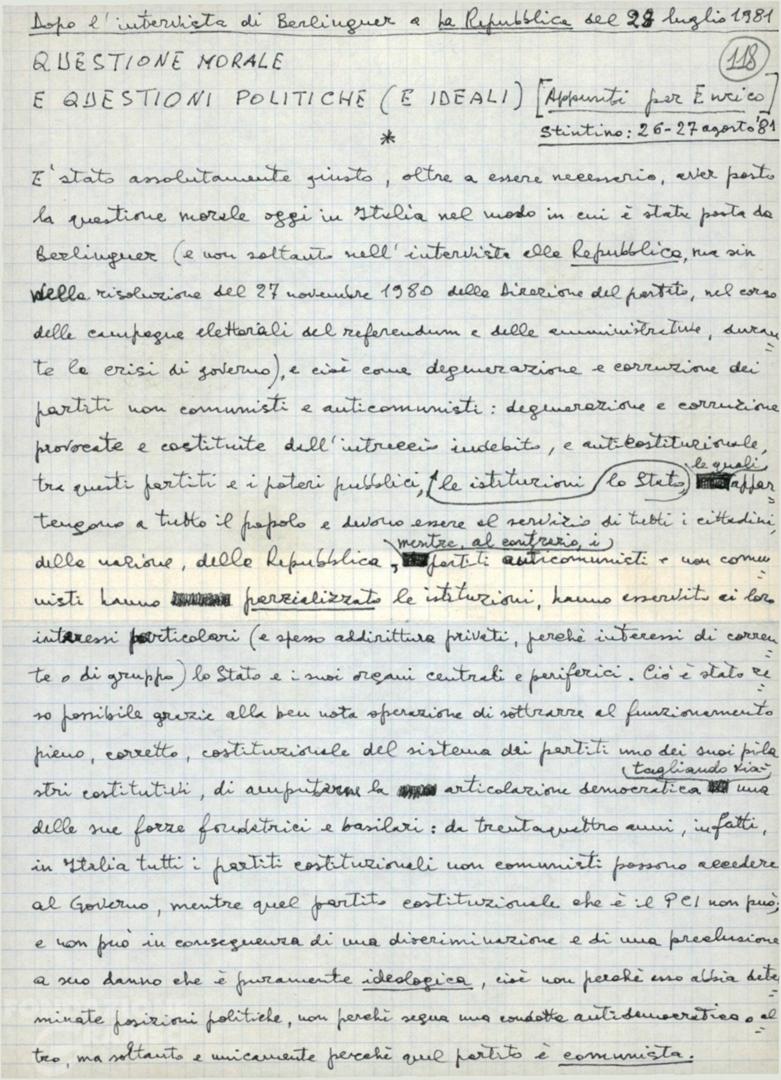 Dopo l'intervista di Berlinguer a La Repubblica del 28 luglio 1981
118
QUESTIONE MORALE
E QUESTIONI POLITICHE (E IDEALI) [Appunti per Enrico]
Stintino: 26-27 agosto '81
*
E' stato assolutamente giusto, oltre a essere necessario, aver posto
la questione morale oggi in Italia nel modo in cui è stata posta da
Berlinguer (e non soltanto nell'intervista alla Repubblica, ma sin
della risoluzione del 27 novembre 1980 della Direzione del partito, nel corso
delle campagne elettorali del referendum e delle amministrative, duran=
te la crisi di governo), e cioè come degenerazione e corruzione dei
partiti non comunisti e anticomunisti: degenerazione e corruzione
provocate e costituite dall'intreccio indebito, e anticostituzionale,
tra questi partiti e i poteri pubblici, le istituzioni lo Stato, le quali appar=
tengono a tutto il popolo e devono essere al servizio di tutti i cittadini,
della nazione, della Repubblica, mentre, al contrario, i partiti anticomunisti e non comu=
nisti hanno parzializzato le istituzioni, hanno asservito ai loro
interessi particolari (e spesso addirittura privati, perchè interessi di corren=
te o di gruppo) lo Stato e i suoi organi centrali e periferici. Ciò è stato re=
so possibile grazie alla ben nota operazione di sottrarre al funzionamento
pieno, corretto, costituzionale del sistema dei partiti uno dei suoi pila=
stri costitutivi, di amputarne la articolazione democratica tagliando via una
delle sue forze fondatrici e basilari: da trentaquattro anni, infatti,
in Italia tutti i partiti costituzionali non comunisti possono accedere
al Governo, mentre quel partito costituzionale che è il PCI non può;
e non può in conseguenza di una discriminazione e di una preclusione
a suo danno che è puramente ideologica, cioè non perchè esso abbia dete=
minate posizioni politiche, non perchè segua una condotta antidemocratica o al=
tro, ma soltanto e unicamente perchè quel partito è comunista.